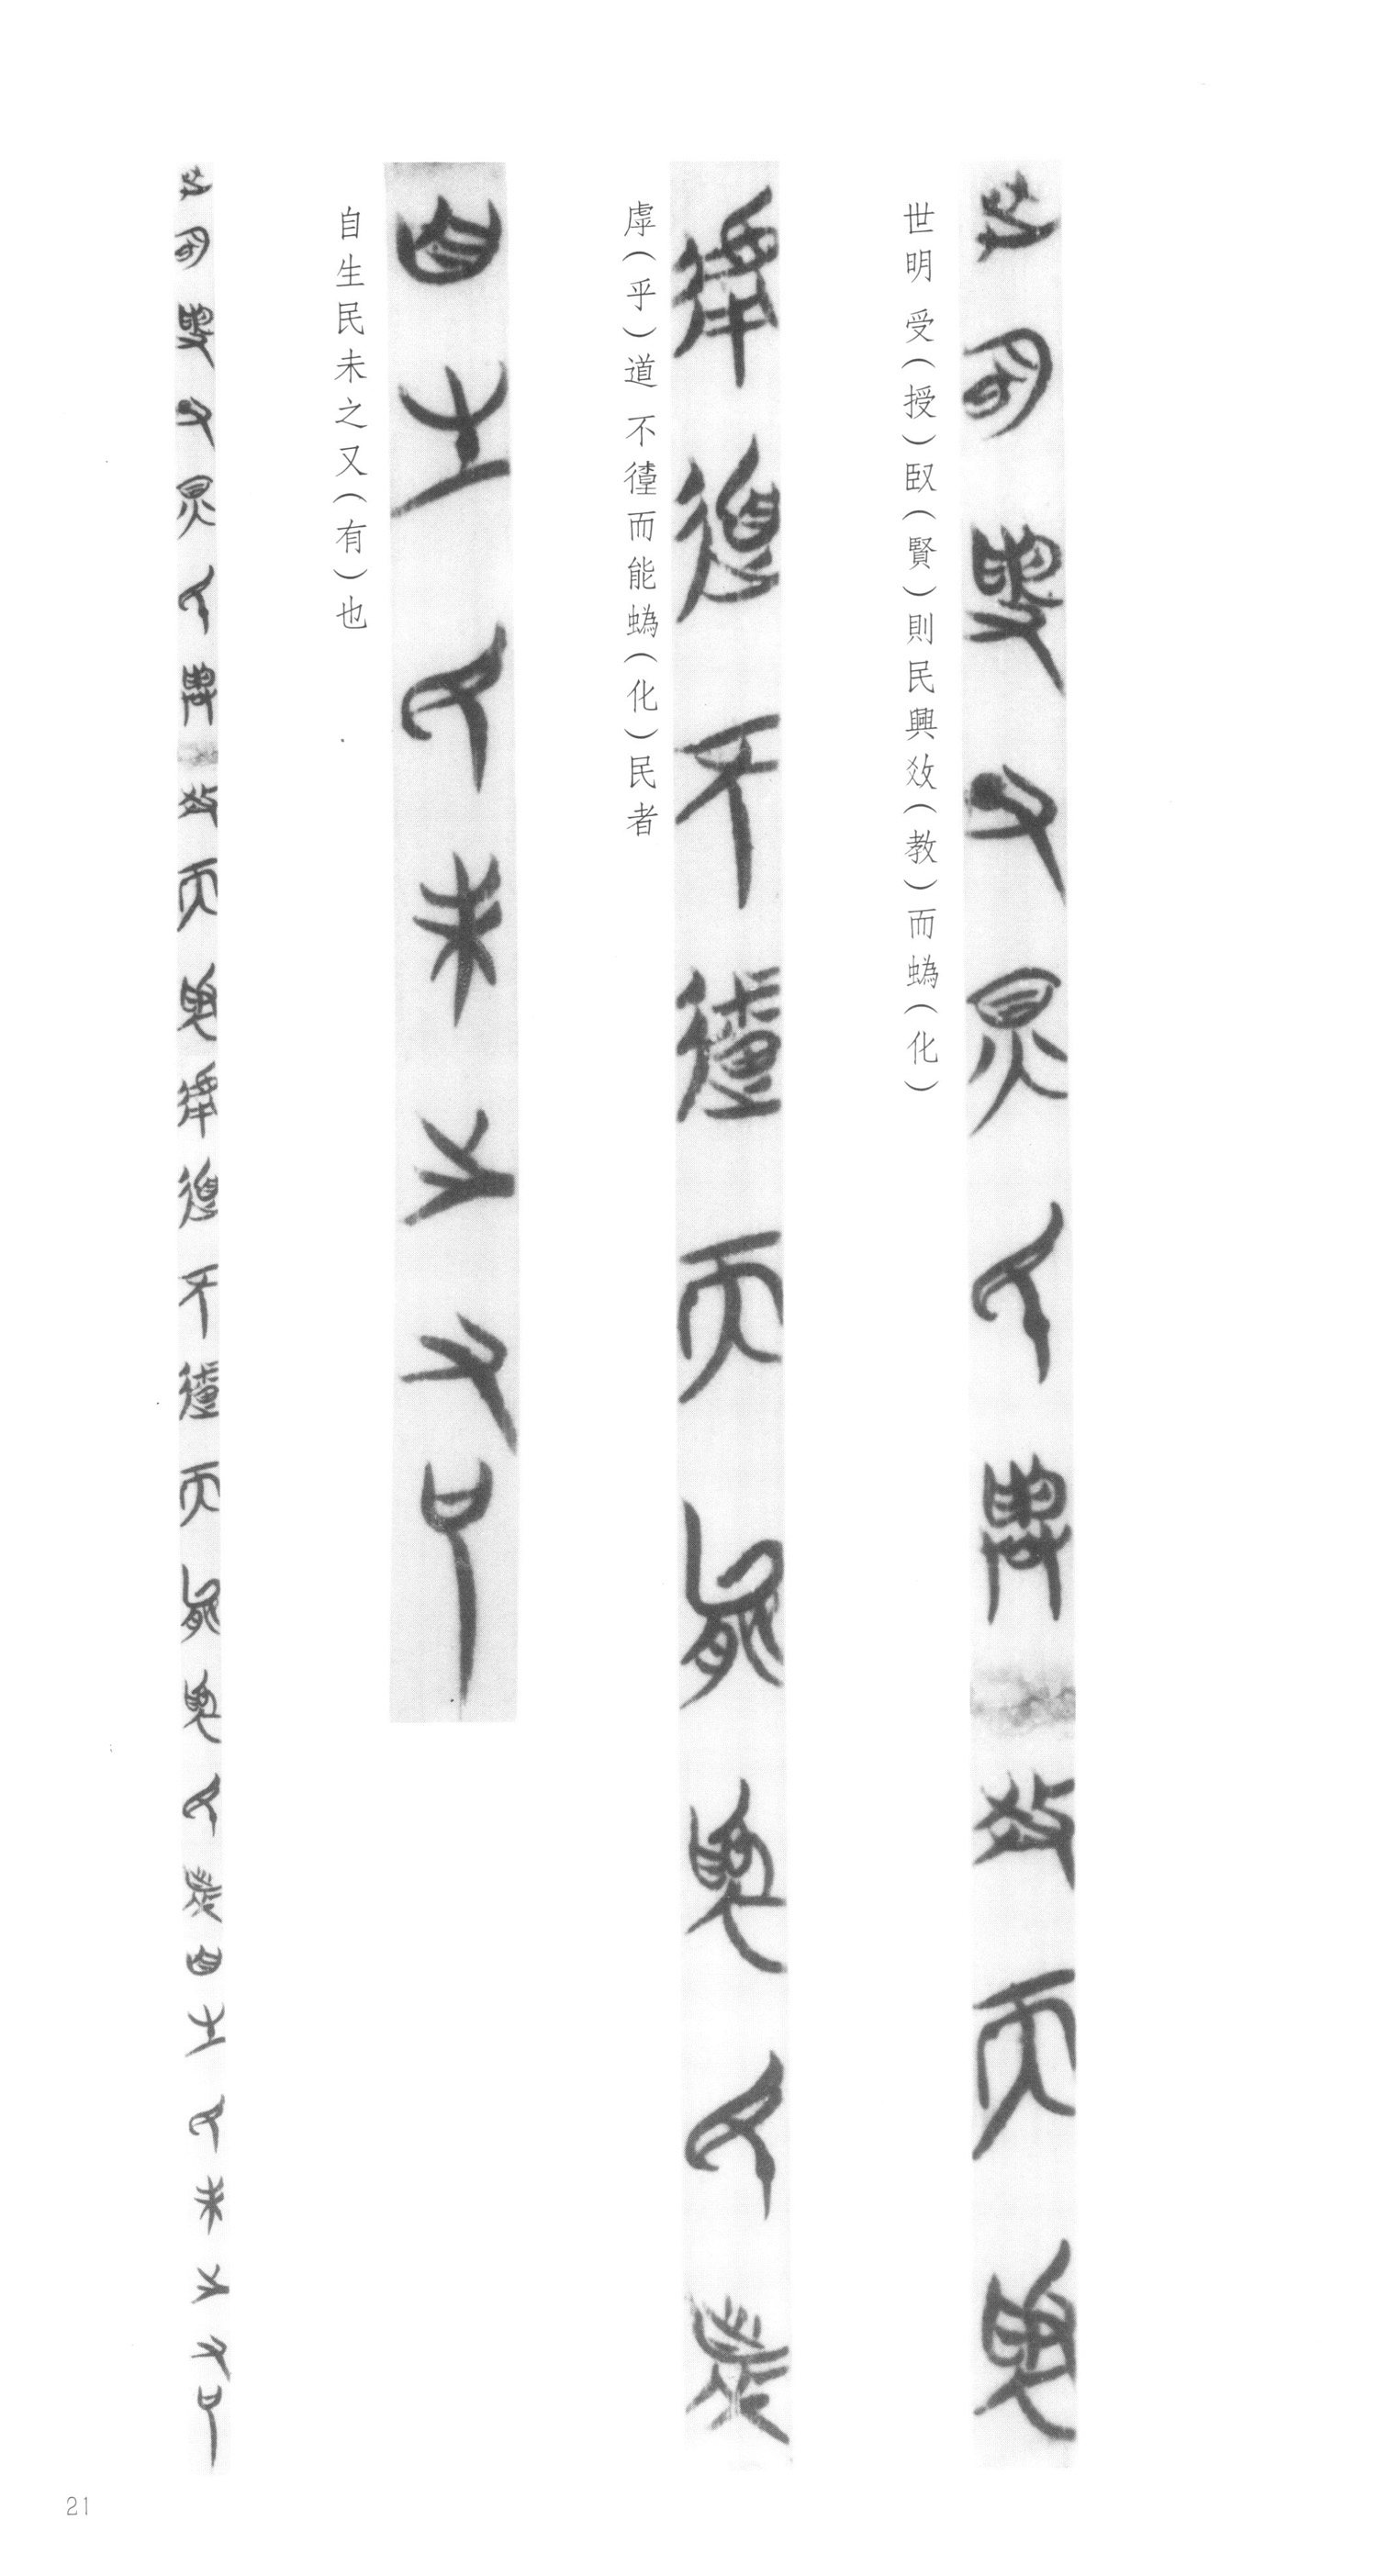 世明 受(授)臤(賢)則民興效(教)而蟡(化)
虖(乎)道 不徸而能蟡(化)民者
自生民未之又(有)也
21